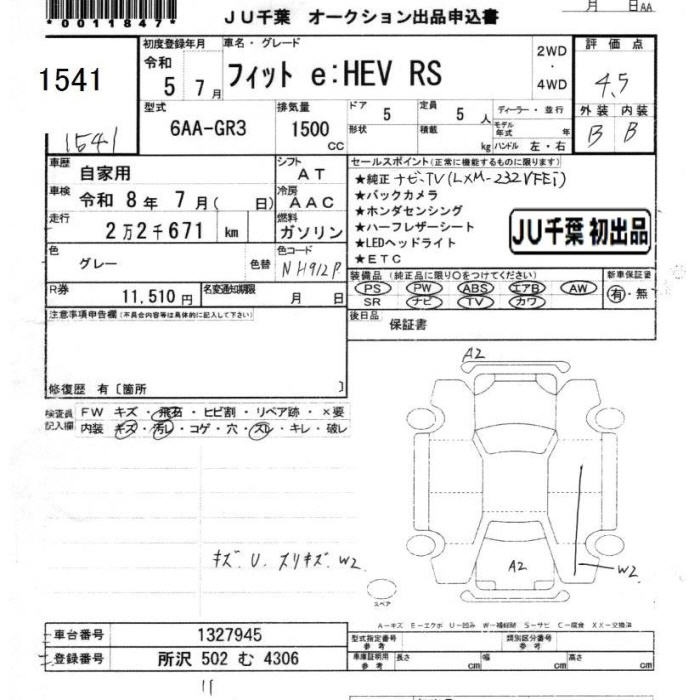 *0011847*
JU千葉 オークション出品申込書
月 日AA
1541
1541
初度登録年月
令和
5 7月
車名・グレード
フィット e:HEV RS
2WD
・
4WD
評価点
4.5
外装 内装
B B
型式
6AA-GR3
排気量
1500
CC
ドア
5
形状
定員
5 人
積載
kg
ディーラー・並行
モデル
年式 年
ハンドル 左・右
車歴
自家用
シフト
AT
車検
令和 8年 7月( 日)
冷房
AAC
走行
2万2千671 km
燃料
ガソリン
色
グレー
色替
色コード
NH912P
R券
11,510円
名変通知期限
月 日
セールスポイント(正常に機能するものに限ります)
★純正ナビ・TV(LXM-232VFEi)
★バックカメラ
★ホンダセンシング
★ハーフレザーシート
★LEDヘッドライト
★ETC
JU千葉 初出品
装備品(純正品に限り○をつけてください)
PS PW ABS エアB AW
SR ナビ TV カワ
新車保証書
有・無
後日品
保証書
注意事項申告欄(不具合内容等は具体的に記入して下さい)
修復歴 有〔箇所 〕
検査員
記入欄
FW キズ・飛石・ヒビ割・リペア跡・×要
内装 キズ・汚レ・コゲ・穴・スレ・キレ・破レ
キズ.U.スリキズ.W2
A2
A2
W2
スペア
A-キズ E-エクボ U-凹み W-補修跡 S-サビ C-腐食 XX-交換済
車台番号
1327945
登録番号
所沢 502 む 4306
型式指定番号
参考
類別区分番号
参考
車庫証明用
参考
長さ cm
幅 cm
高さ cm